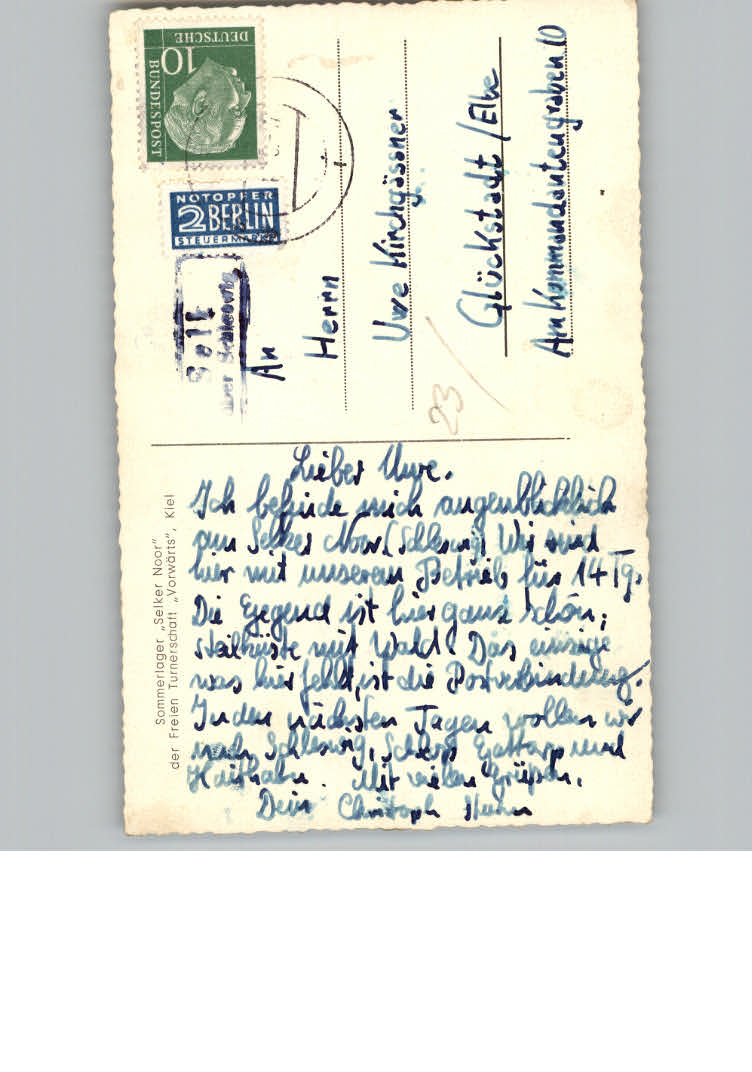 DEUTSCHE
BUNDESPOST
10
NOTOPFER
2 BERLIN
STEUERMARKE
über Schleswig
An
Herrn
Uwe Kirchgässner
Glückstadt / Elbe
Am Kommandantengraben 10
23
Sommerlager „Selker Noor"
der Freien Turnerschaft „Vorwärts", Kiel
Lieber Uwe.
Ich befinde mich augenblicklich
am Selker Noor (Schleswig) Wir sind
hier mit unserem Betrieb für 14 Tg.
Die Gegend ist hier ganz schön;
Steilküste mit Wald. Das einzige
was hier fehlt, ist die Postverbindung.
In den nächsten Tagen wollen wir
nach Schleswig, Schloss Gottorp und
Haithabu. Mit vielen Grüßen,
Dein Christoph